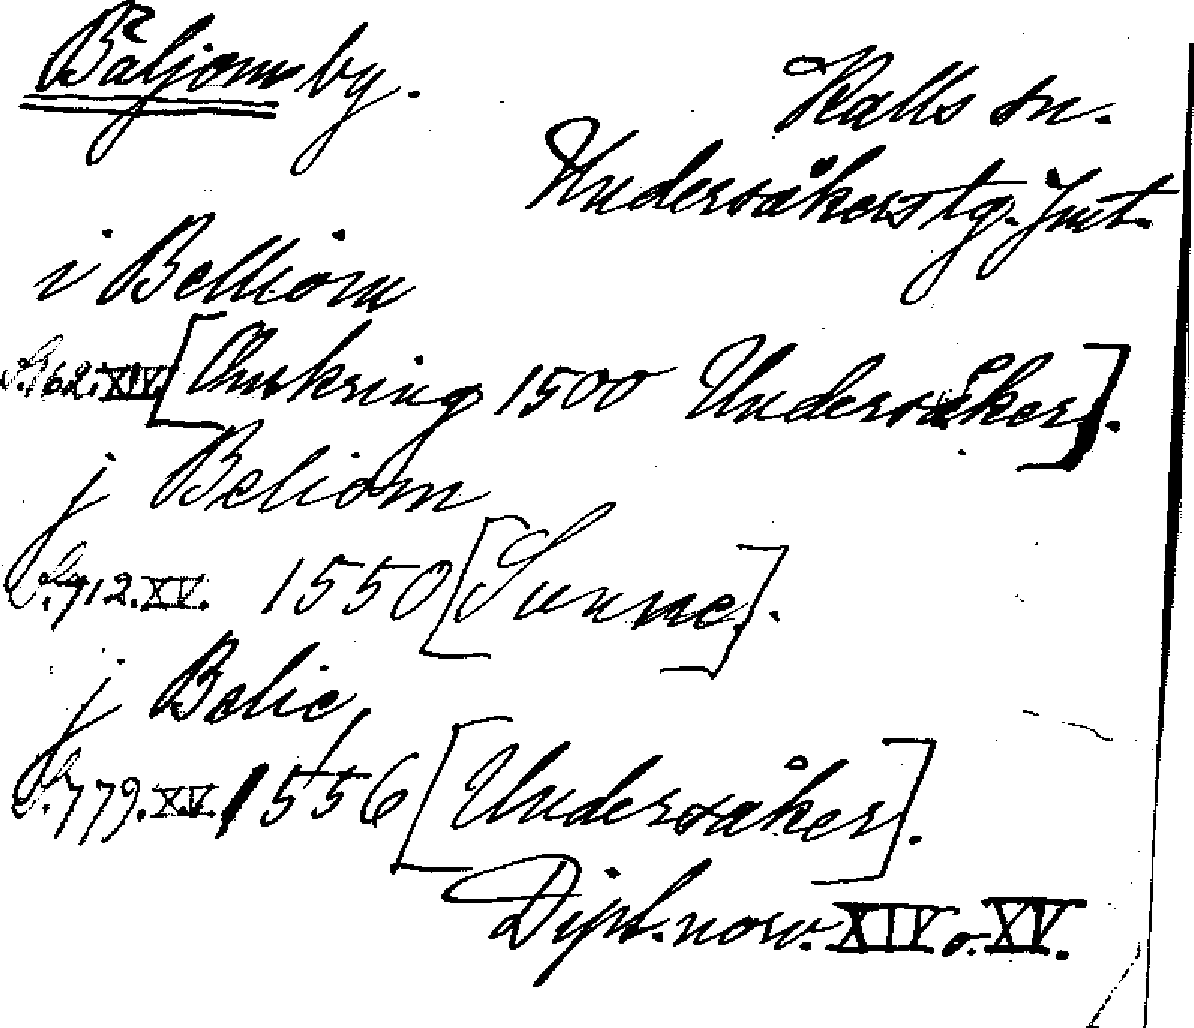 Bäljom by.
Halls sn.
Undersåkers tg. Jmt.
i Belliom
S. 162. XIV. [Omkring 1500 Undersåker].
j Beliom
S. 912. XV. 1550 [Sunne].
j Belie
S. 779. XV. 1556 [Undersåker].
Dipl. norv. XIV o. XV.